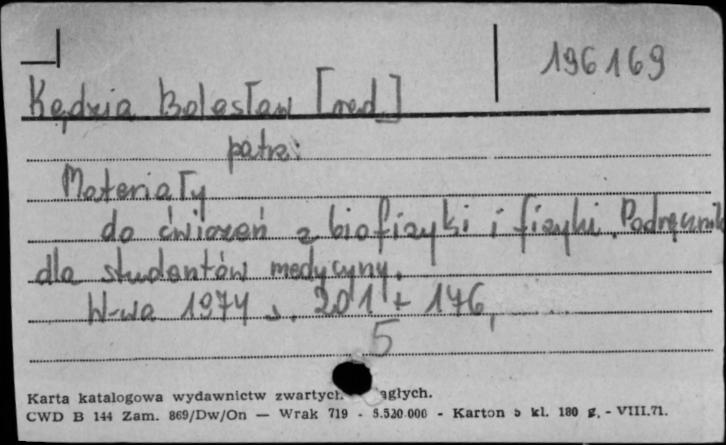 196169
Kędzia Bolesław [red.]
patrz:
Materiały
do ćwiczeń z biofizyki i fizyki. Podręcznik
dla studentów medycyny.
W-wa 1974 s. 201 + 146,
5
Karta katalogowa wydawnictw zwartych ciągłych.
CWD B 144 Zam. 869/Dw/On — Wrak 719 - 5.520.000 - Karton kl. 180 g, - VIII.71.